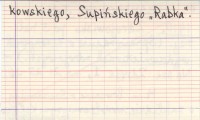 kowskiego, Supińskiego „Rabka".